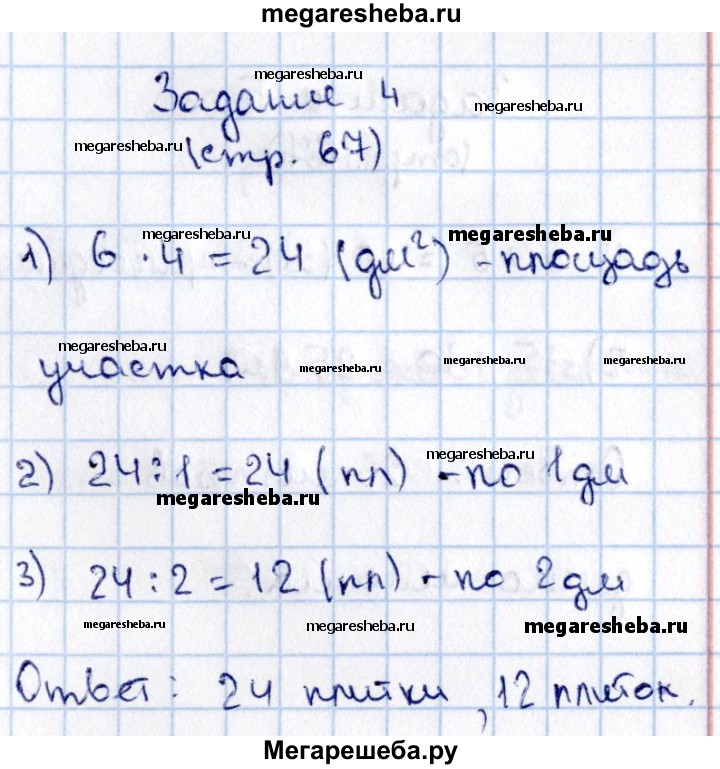 megaresheba.ru
megaresheba.ru
Задание 4
megaresheba.ru
megaresheba.ru
(стр. 67)
megaresheba.ru
megaresheba.ru
1) 6 · 4 = 24 (дм²) - площадь
megaresheba.ru
участка
megaresheba.ru
megaresheba.ru
megaresheba.ru
megaresheba.ru
2) 24 : 1 = 24 (пл) - по 1 дм
megaresheba.ru
3) 24 : 2 = 12 (пл) - по 2 дм
megaresheba.ru
megaresheba.ru
megaresheba.ru
Ответ: 24 плитки, 12 плиток.
Мегарешеба.ру